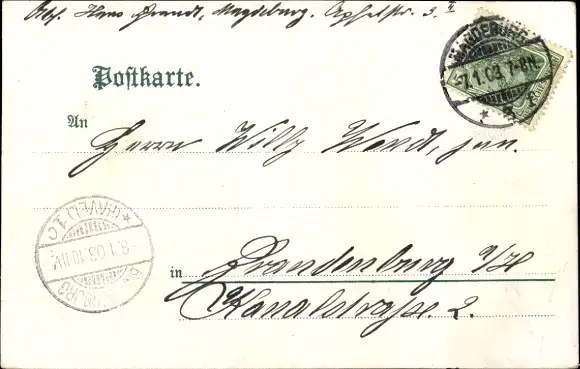 Abs. Hans Brandt, Magdeburg. Apfelstr. 3. II
MAGDEBURG
7.1.03. 7-8N.
* 2 r
Postkarte.
An
Herrn Willy Wendt, jun.
BRANDENBURG
8.1.03. 10.11V.
* (HAVEL) 1 c
in Brandenburg a/H
Kanalstrasse 2.